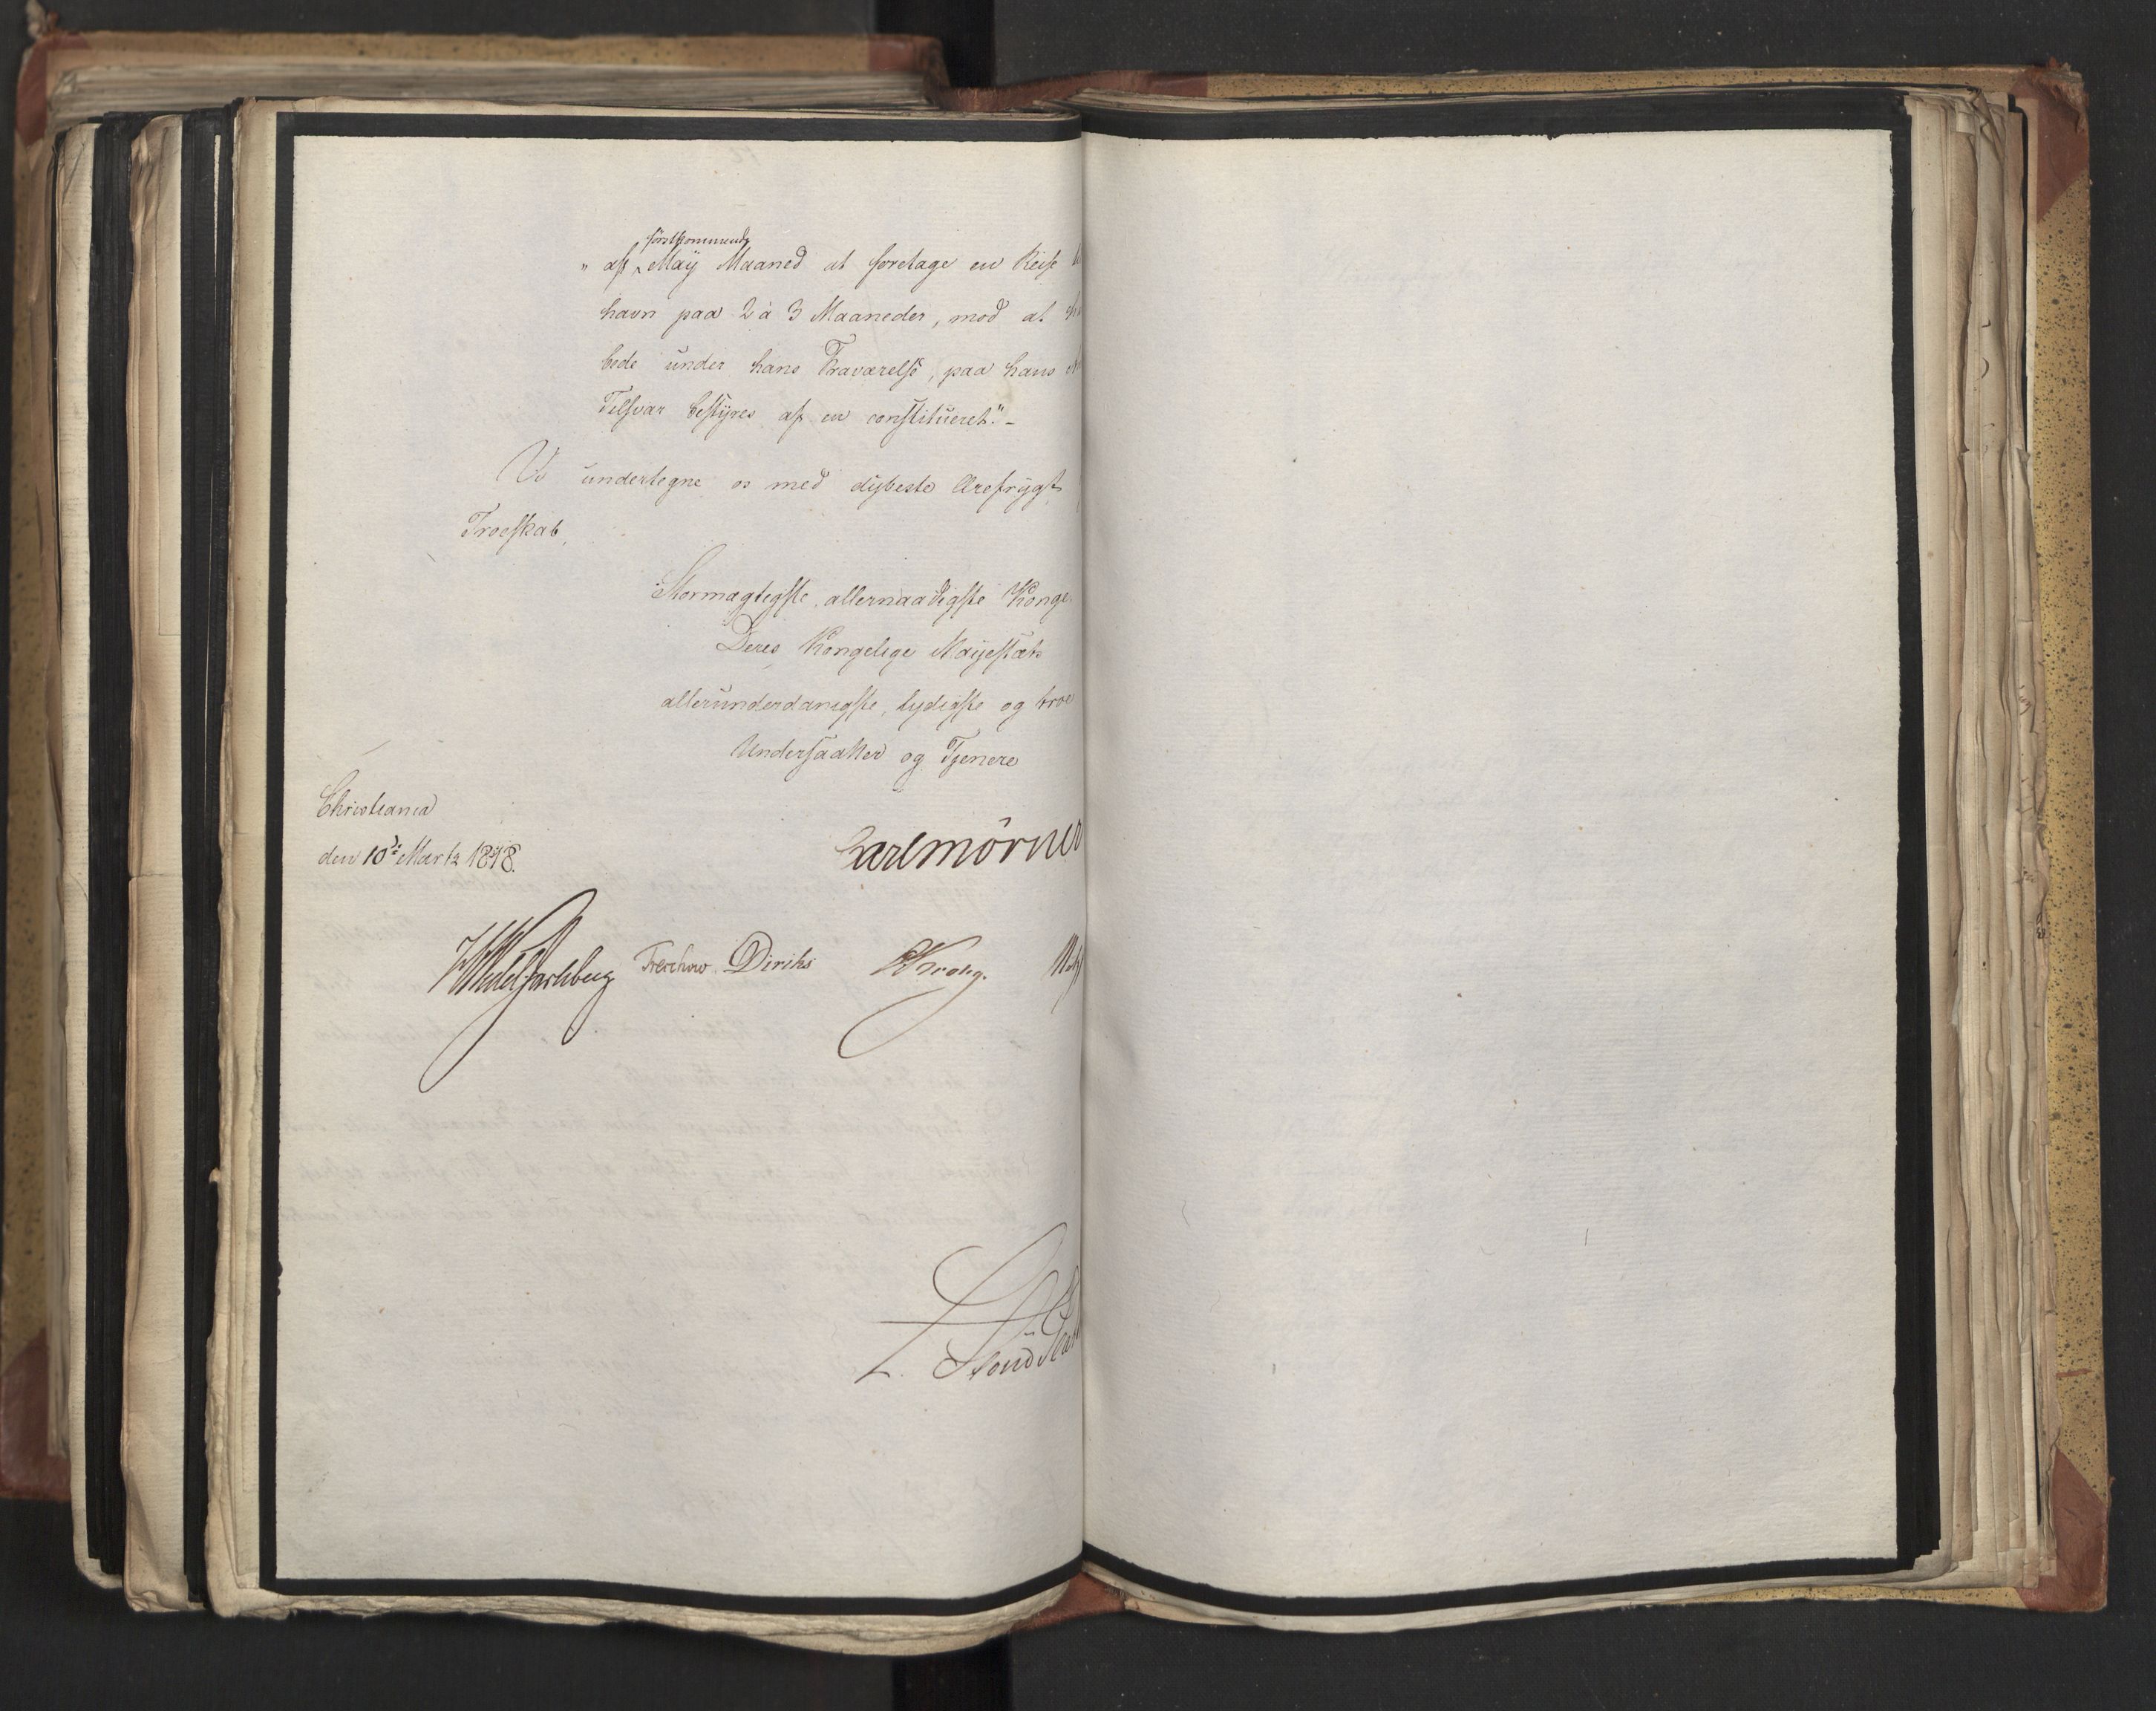 förstkommende
" af Maÿ Maaned at foretage en Reise
havn paa 2 à 3 Maaneder, mod at
bede under hans Fraværelse, paa hans
Tilsvar bestÿres af en constitueret." -
Vi undertegne os med dÿbeste Ærefrÿgt
Troeskab,
Stormægtigste, allernaadigste Konge
Deres Kongelige Maÿestæts
allerunderdanigste, lydigste og troe
Undersaatter og Tjenere
Christiania
den 10de Marts 1818.
Carl Mörner
Wedel Jarlsberg Treschow Diriks Krohg.